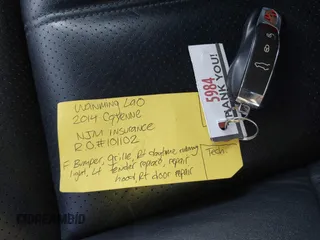 Wanming Lao
2014 Cayenne
NJM Insurance
RO#101102
F Bumper, grille, Rt daytime running
light, Lt fender replace, repair
hood, Rt door repair
Tech:
5984
THANK YOU!